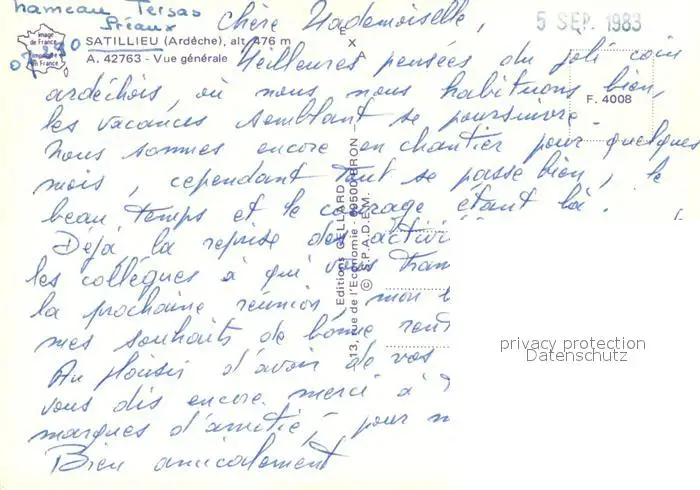 hameau Tersas
Préaux
07290
Chère Mademoiselle,
5 SEP. 1983
Image de France
Imprimé en France
SATILLIEU (Ardèche), alt. 476 m
A. 42763 - Vue générale
EXA
F. 4008
Meilleures pensées du joli coin
ardéchois, où nous nous habituons bien,
les vacances semblant se poursuivre.
Nous sommes encore en chantier pour quelques
mois, cependant tout se passe bien, le
beau temps et le courage étant là.
Déjà la reprise des activi
les collègues à qui vous tran
la prochaine réunion, mon
mes souhaits de bonne rent
Au plaisir d'avoir de vos
vous dis encore merci à
marques d'amitié, pour
Bien amicalement
Editions GELLARD
13, rue de l'Economie - 69500 BRON
© S.P.A.D.E.M.
privacy protection
Datenschutz